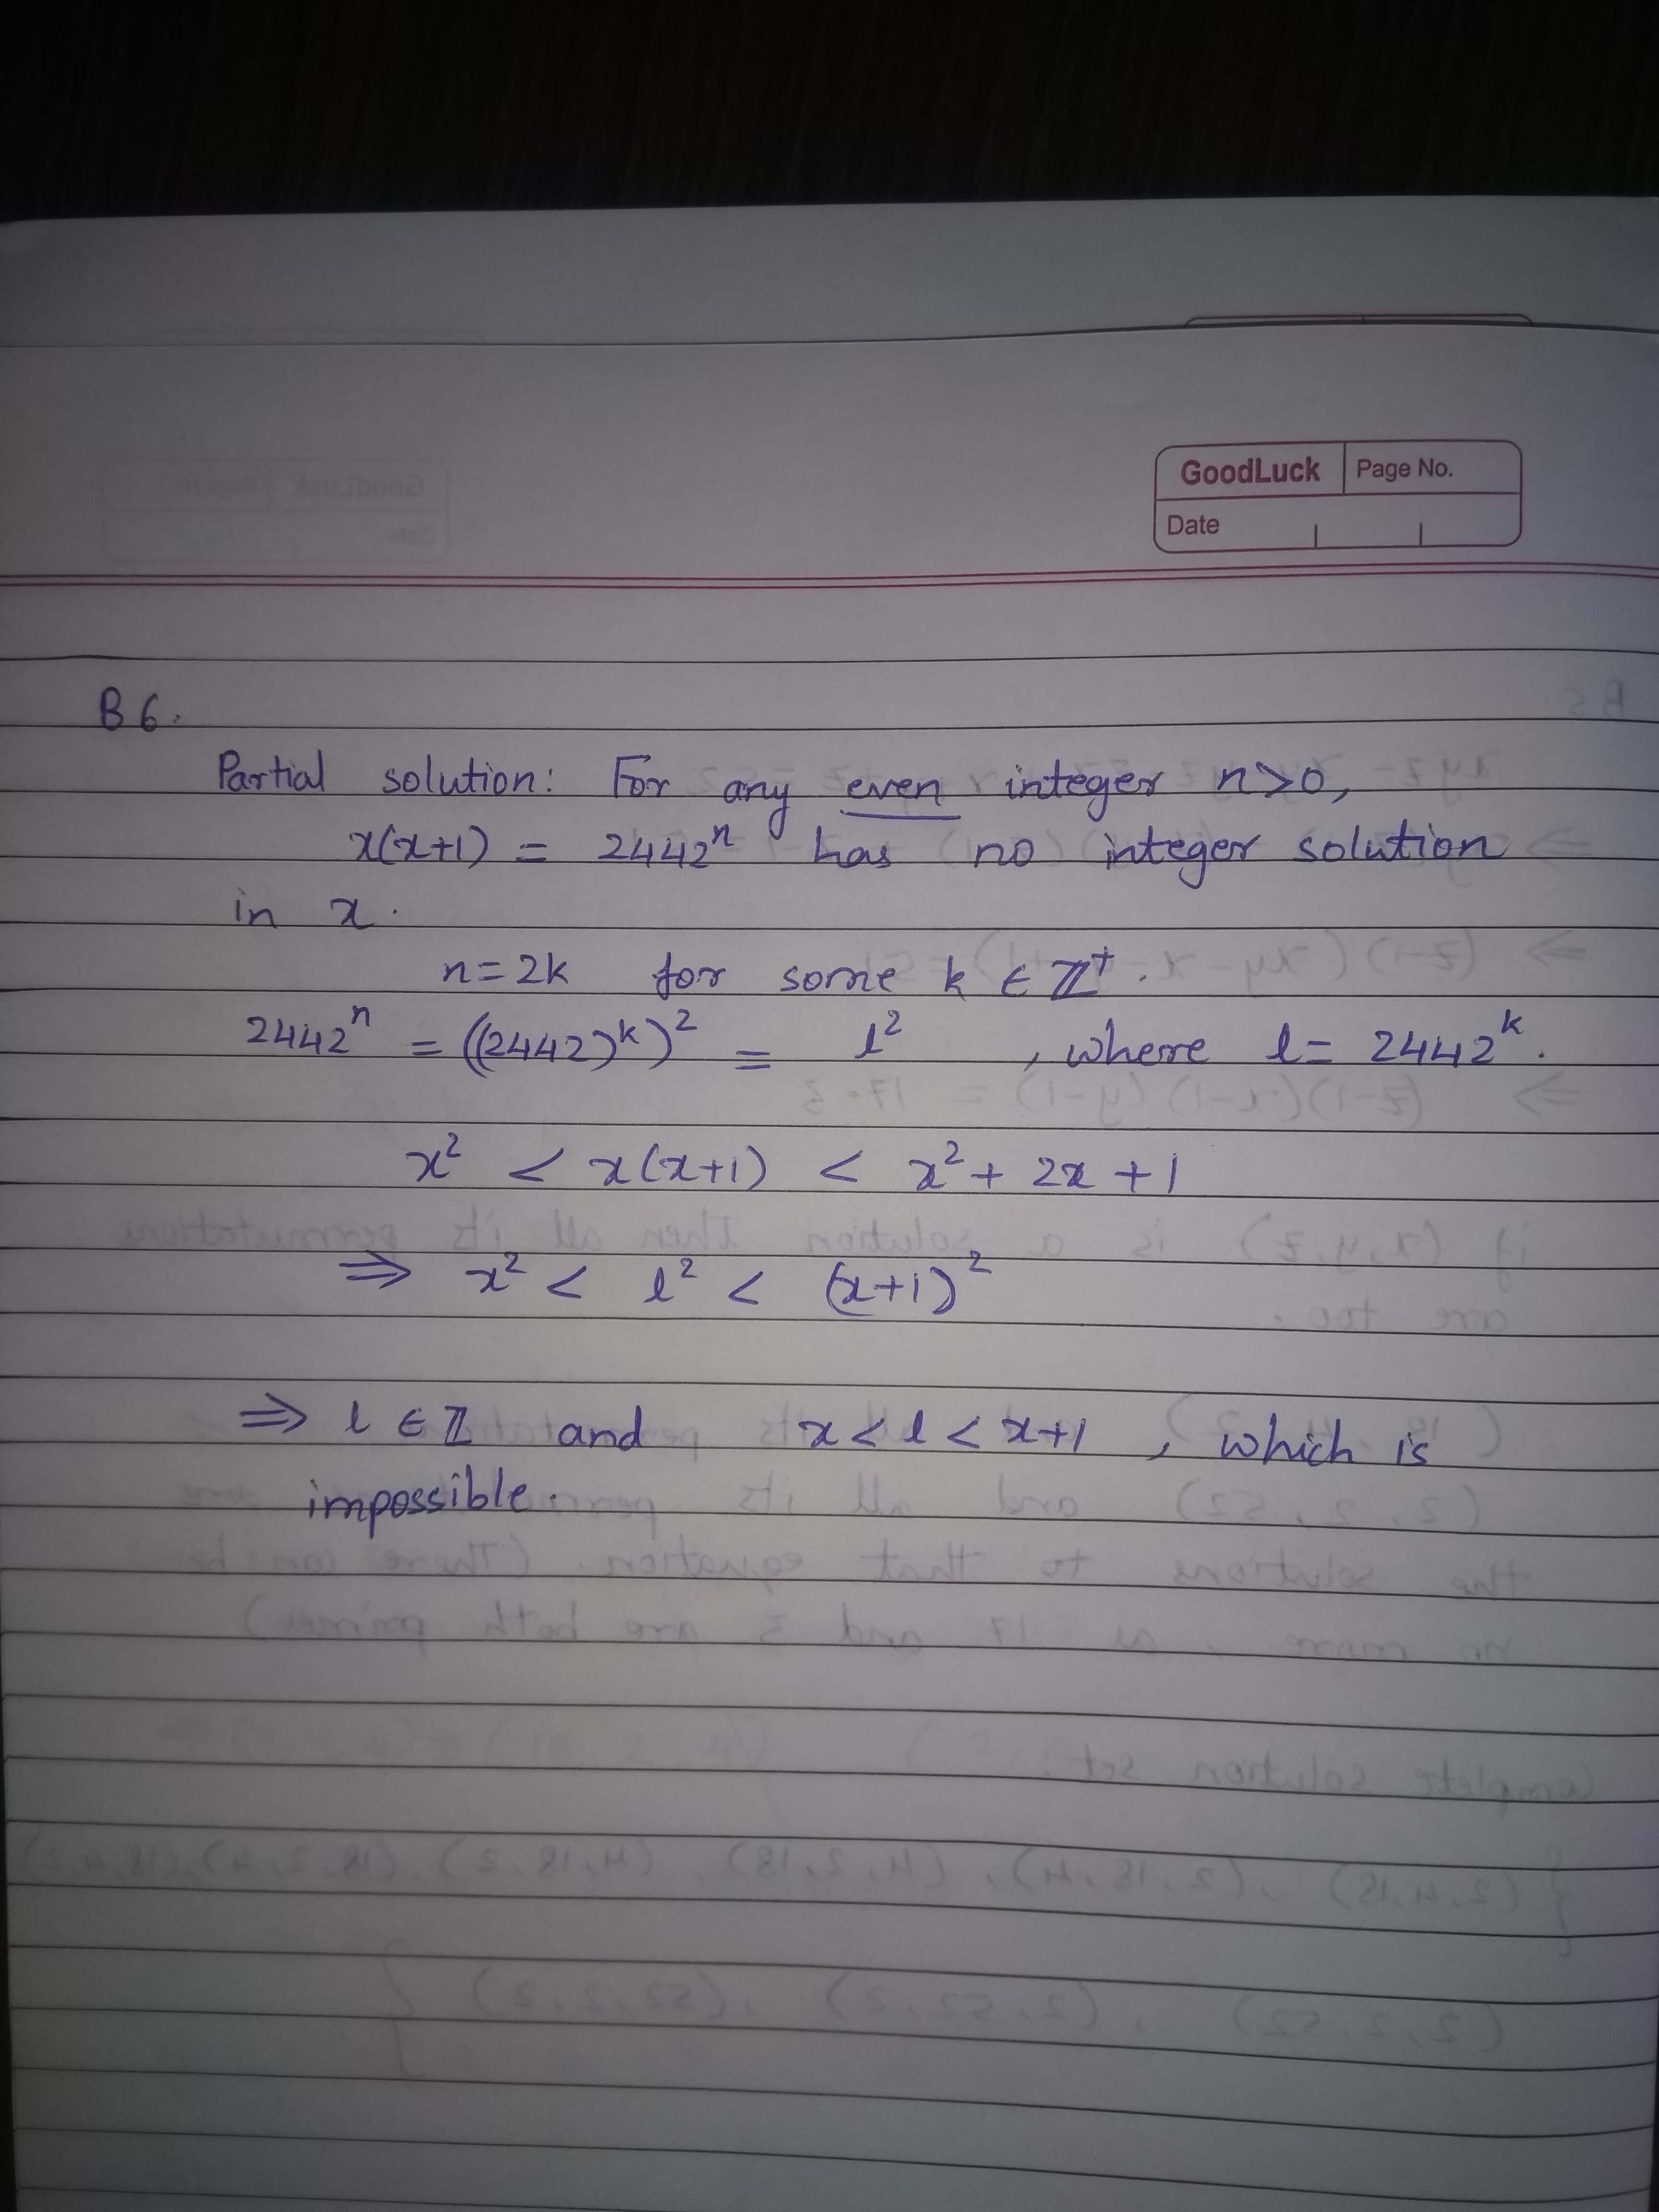 GoodLuck Page No.
Date
B6.
Partial solution: For any even integer n>0,
x(x+1) = 2442ⁿ has no integer solution
in x.
n=2k for some k ∈ ℤ⁺.
2442ⁿ = ((2442)ᵏ)² = l² , where l = 2442ᵏ.
x² < x(x+1) < x² + 2x + 1
⇒ x² < l² < (x+1)²
⇒ l ∈ ℤ and x < l < x+1 , which is
impossible.